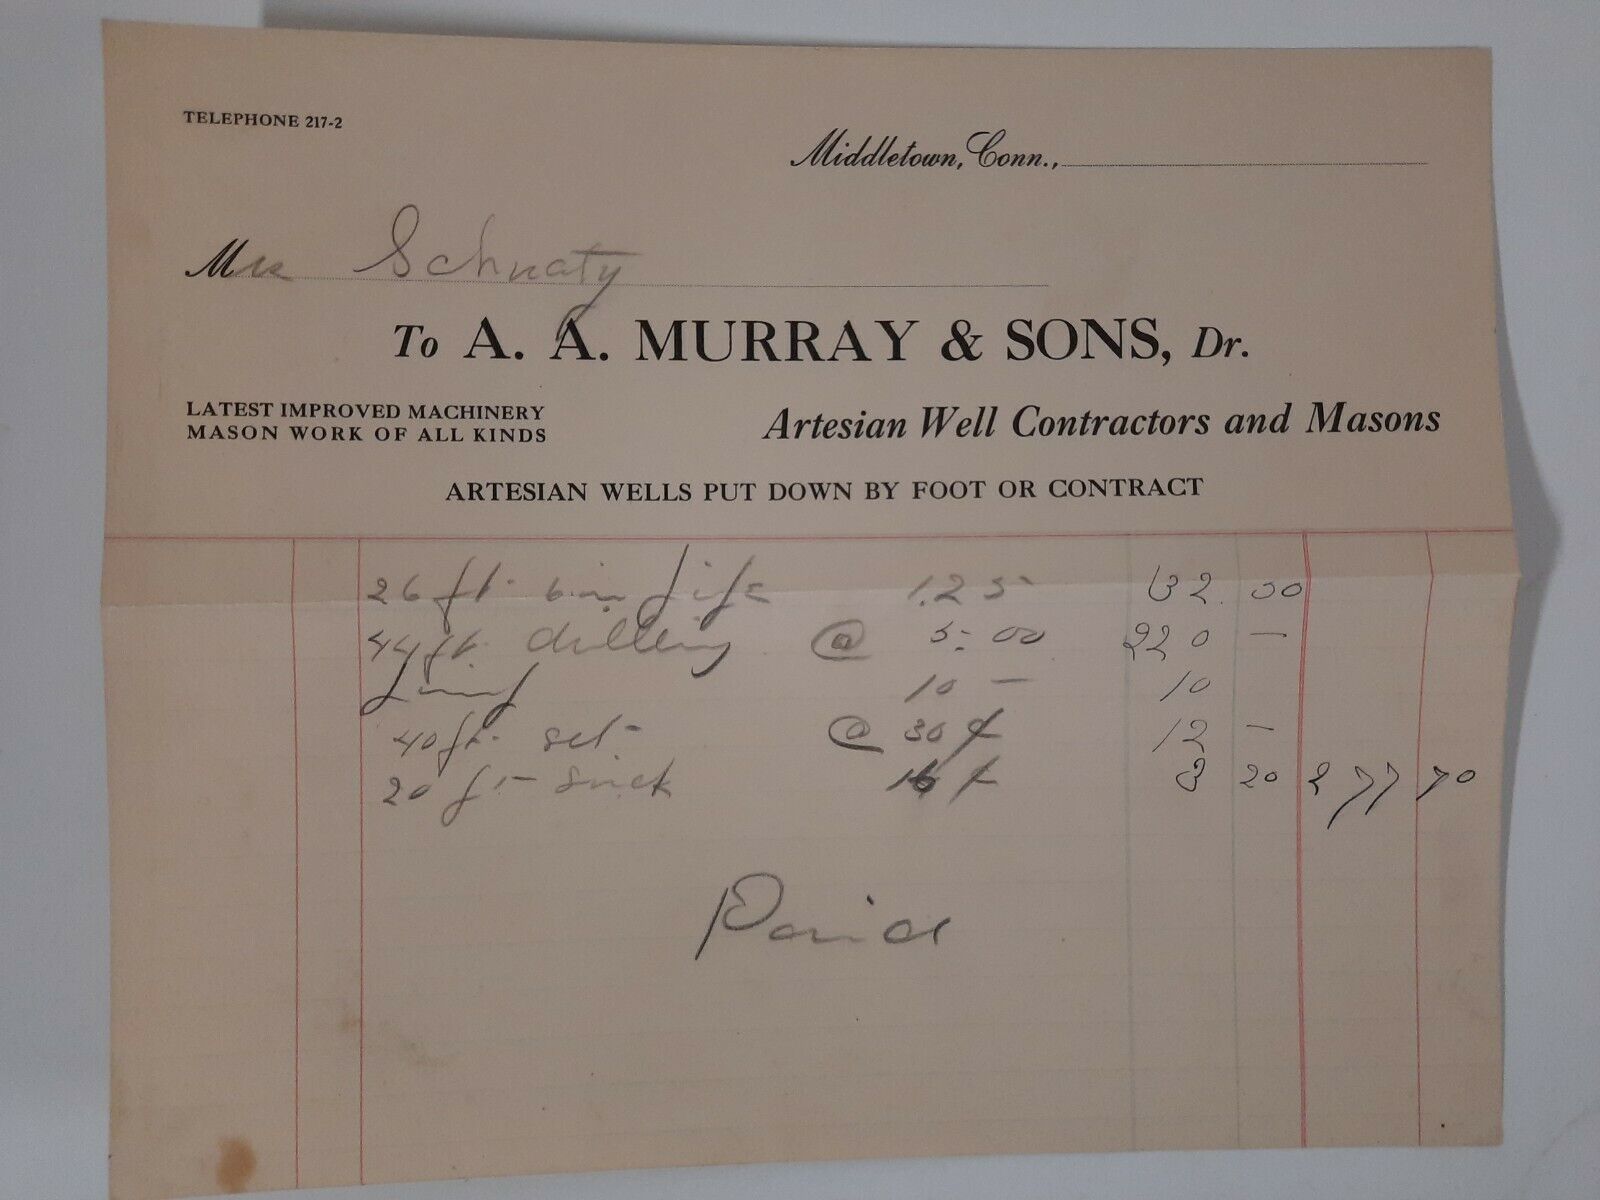 TELEPHONE 217-2
Middletown, Conn.,
Mrs Schnaty
To A. A. MURRAY & SONS, Dr.
LATEST IMPROVED MACHINERY
MASON WORK OF ALL KINDS
Artesian Well Contractors and Masons
ARTESIAN WELLS PUT DOWN BY FOOT OR CONTRACT
26 ft. 6 in pipe 1.25 32.50
44 ft. drilling @ 5.00 220 —
10 — 10
40 ft. set @ 30 ¢ 12 —
20 ft 16 ¢ 3 20 277 70
Paid